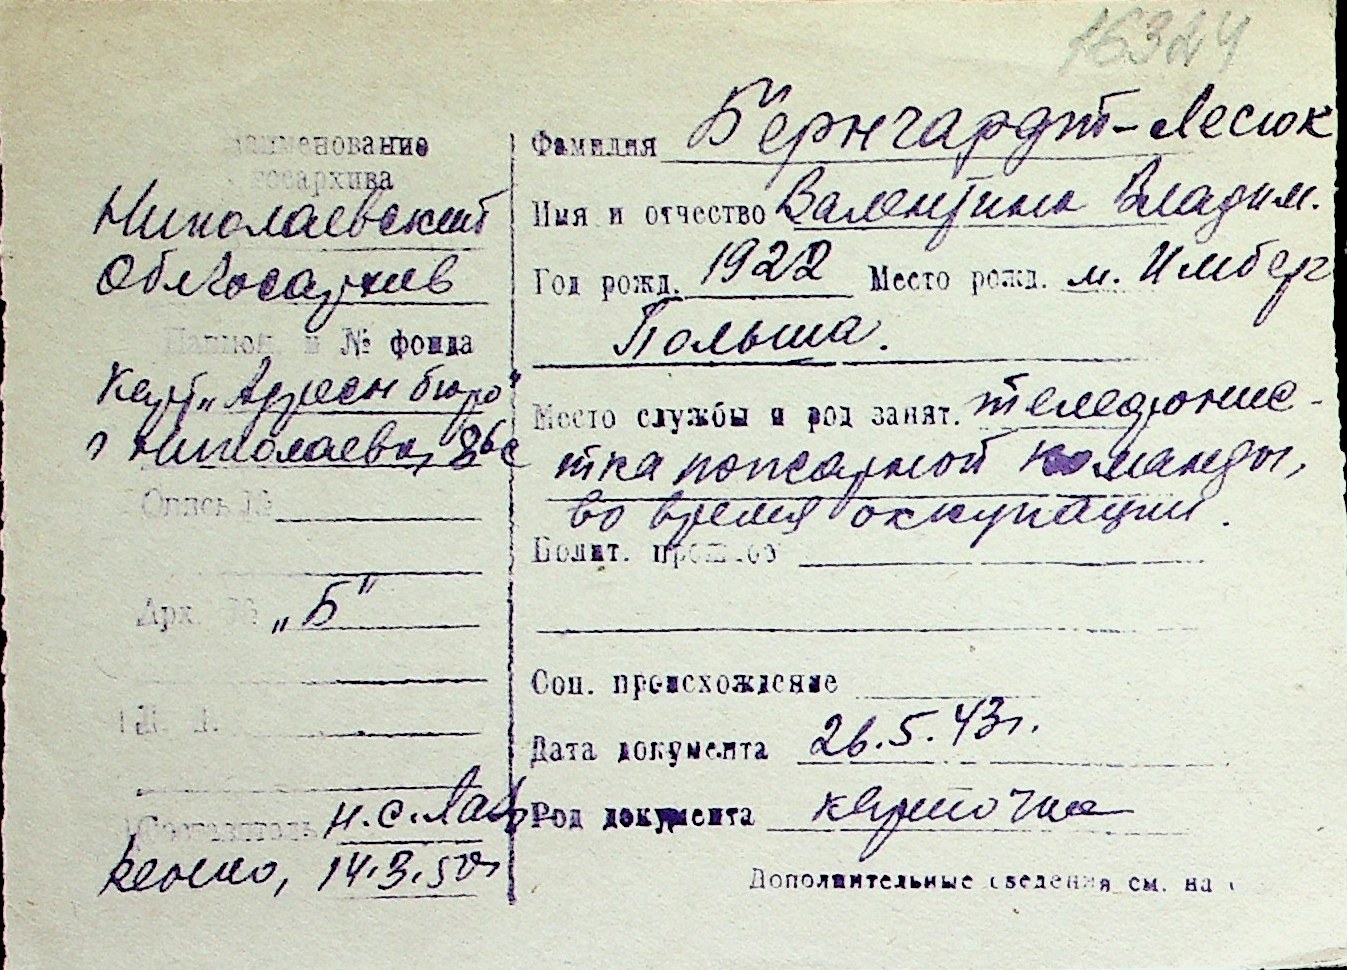 16324
Наименование
госархива
Николаевский
Облгосархив
Наимен. и № фонда
Карт. „Адресн бюро"
г Николаева,
Опись №
Арх. № „Б"
Составитель н.с. Лав
ренко, 14.3.50г
Фамилия Бернгардт-Лесюк
Имя и отчество Валентина Владим.
Год рожд. 1922 Место рожд. м. Имберг
Польша.
Место службы и род занят. телефонис-
тка пожарной команды,
во время оккупации.
Полит. прошлое
Соц. происхождение
Дата документа 26.5.43г.
Род документа карточка
Дополнительные сведения см. на